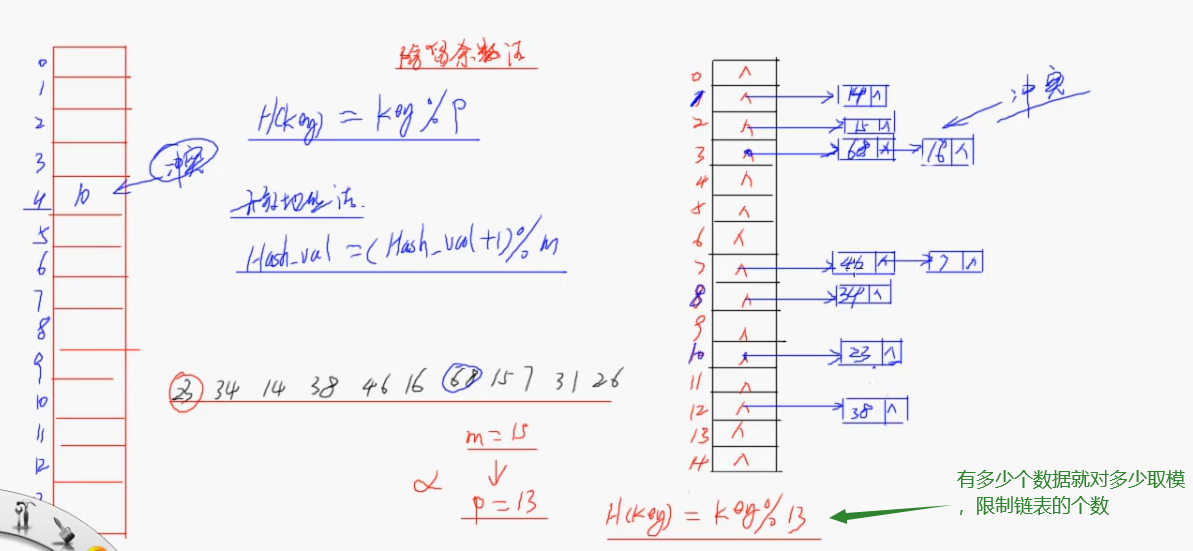 除留余数法
H(key) = key % p
冲突
开放地址法
Hash_val = (Hash_val+1)% m
23 34 14 38 46 16 68 15 7 31 26
m = 15
α
p = 13
0
1
2
3
4 10
5
6
7
8
9
10
11
12
冲突
0 ∧
1 ∧ 14 ∧
2 ∧ 15 ∧
3 68 ∧ 16 ∧
4 ∧
5 ∧
6 ∧
7 ∧ 46 ∧ 7 ∧
8 ∧ 34 ∧
9 ∧
10 ∧ 23 ∧
11 ∧
12 ∧ 38 ∧
13 ∧
14 ∧
H(key) = key % 13
有多少个数据就对多少取模
，限制链表的个数